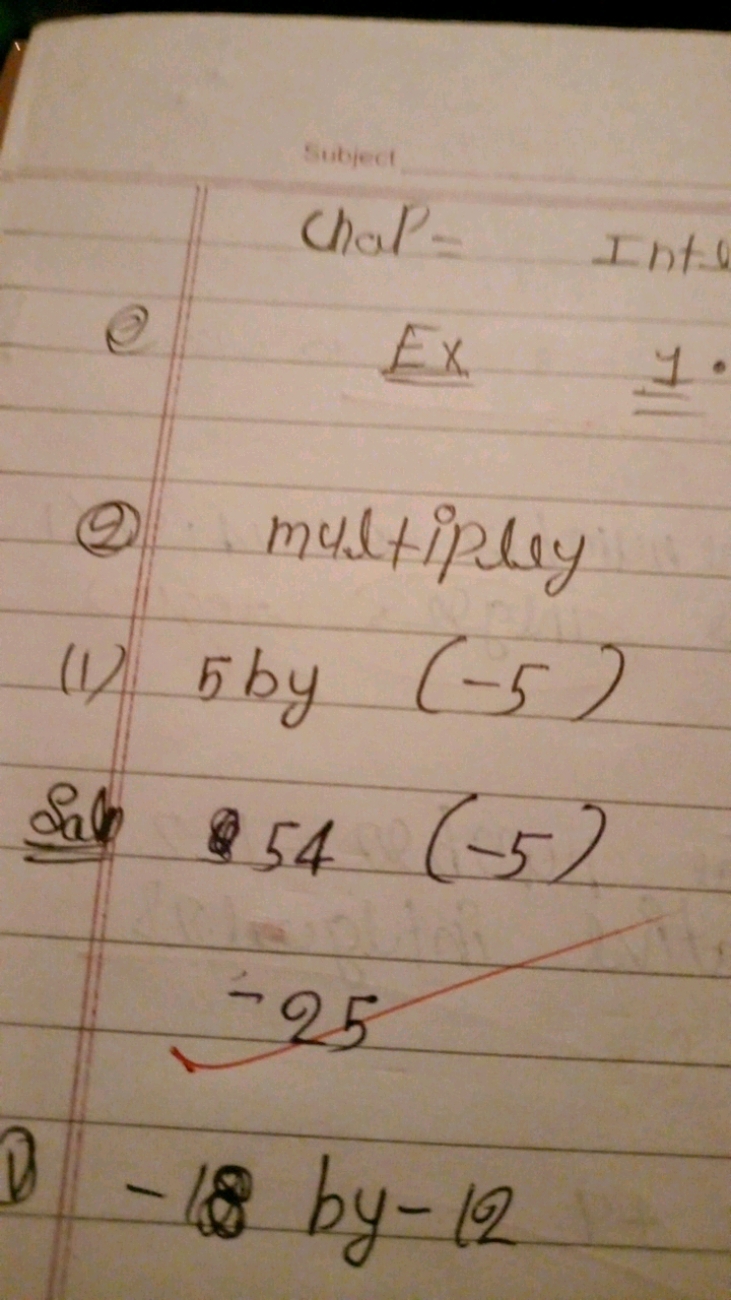 Subject
Chap = Inte
Ex 1.
② multipley
(1) 5 by (-5)
Sol 54 (-5)
-25
-18 by -12